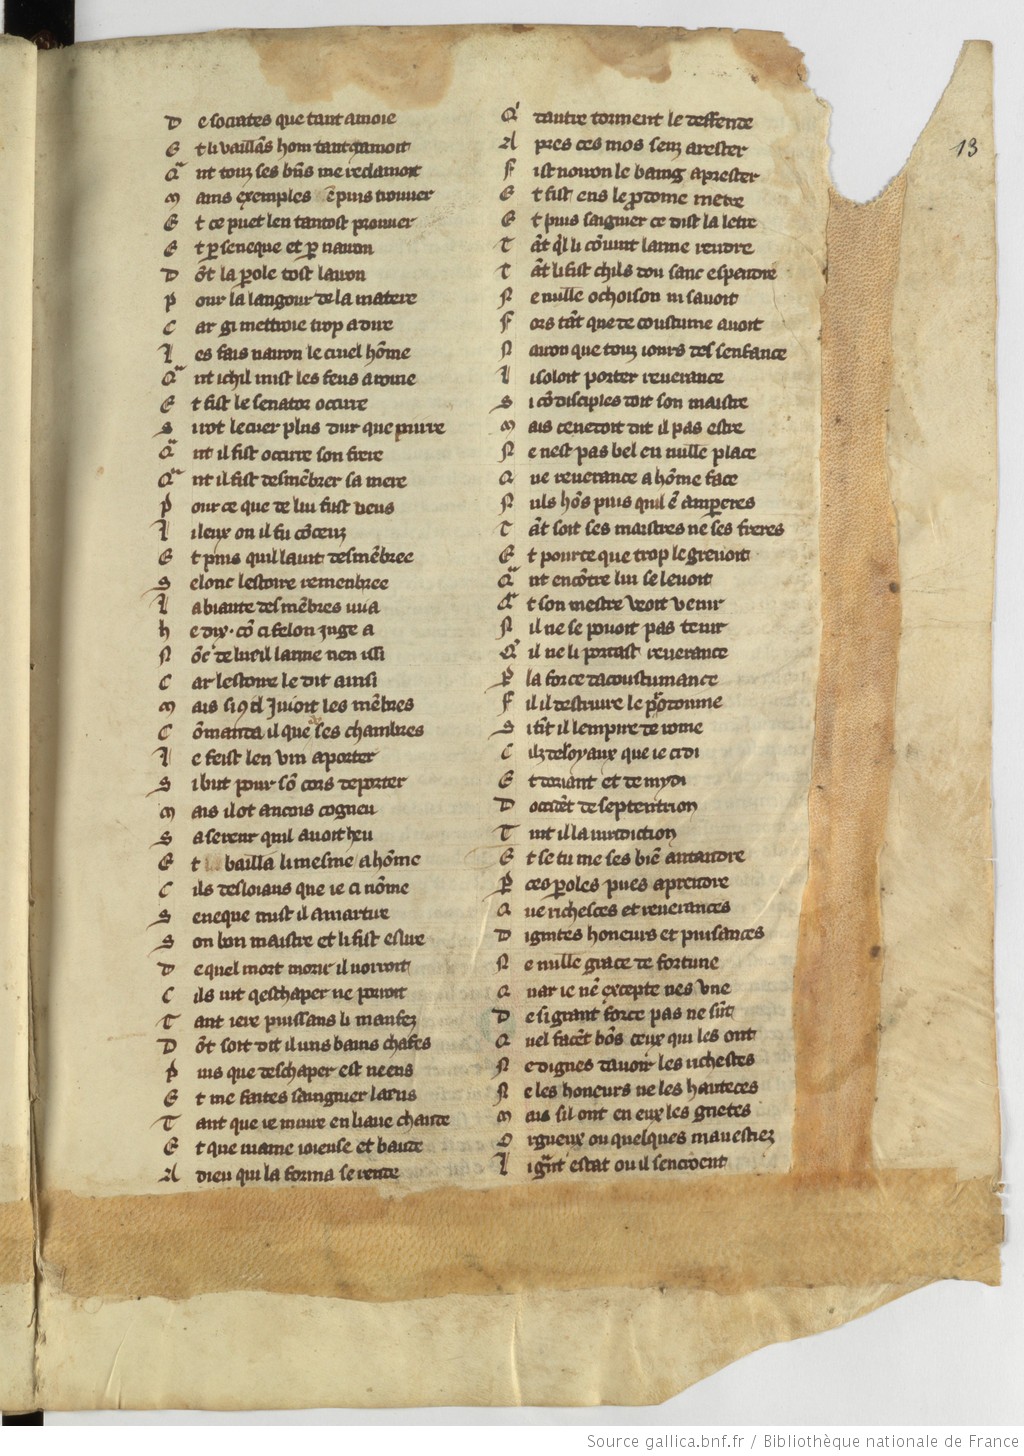 De socrates que tant amoie
Et li vaillãs hom tant gamoit
Qãnt touz ses bñs me reclamoit
Mains exemples ẽ puis trouver
Et ce puet len tantost prouver
Et p̱ seneque et p̱ nairon
Dõt la p̱ole tost lairon
Pour la langour de la matere
Car gi mettroie trop a dire
Les fais nairon le cruel hõme
Qãnt ichil mist les feus a rome
Et fist le senator occire
Si rot le cuer plus dur que piurre
Qãnt il fist occirre son frere
Qãnt il fist desmẽbrer sa mere
Pour ce que de lui fust veus
Li leux ou il fu cõceuz
Et puis quil lavit desmẽbree
Selonc lestoire remenbree
La biaute des mẽbres vit a
He dix. cõ ci felon juge a
Nõc de lueil larme nen issi
Car lestoire le dit ainsi
Mais si 9 il jujoit les mẽbres
Cõmanda il que ses chambres
Le feist len vin aporter
Si but pour sõ cors deporter
Mais il ot ancois cogneu
Sa sereur quil avoit heu
Et bailla li mesme a hõme
Cils desloians que ie ci nõme
Seneque mist il a martire
Son bon maistre et li fist eslire
De quel mort morir il vorroit
Cils vit qeschaper ne porroit
Tant iere puissans li maufez
Dõt soit dit il uns bains chafes
Puis que deschaper est neens
Et me faites saingnier laiens
Tant que ie muire en liaue chaude
Et que mame ioieuse et baude
A dieu qui la forma se rende
Q' dautre torment le deffende
Apres ces mos senz arester
Fist noiron le baing aprester
Et fist ens le p̱dome metre
Et puis saignier ce dist la letre
Tãt q̃l li cõvint larme rendre
Tãt li fist chils dou sanc espendre
Ne nulle ochoison ni savoit
Fors tãt que de coustume avoit
Nairon que touz iours des senfance
Li soloit porter reverance
Si cõ disciples doit son maistre
Mais ce ne doit dit il pas estre
Ne nest pas bel en nulle place
Que reverance a hõme face
Nuls hõs puis quil ẽ ampeeres
Tãt soit ses maistres ne ses freres
Et pource que trop le grevoit
Qãnt encõtre lui se levoit
Qãt son mestre veoit venir
Nil ne se povoit pas tenir
Q' il ne li portast reverance
Pla force dacoustumance
Fil il destruire le p̃dome
Si tĩt il lempire de rome
Cilz desloyaux que ie ci di
Et doriant et de mydi
Doccidẽt de septentrion
Tint il la iuridiction
Et se tu me ses biẽ antandre
P ces p̱oles pues aprendre
Que richesces et reverances
Dignites honeurs et puisances
Ne nulle grace de fortune
Quar ie nẽ excepte nes vne
De si grant force pas ne sũt
Quel facẽt bõs ceux qui les ont
Ne dignes davoir les richestes
Ne les honeurs ne les hauteces
Mais sil ont en eux les grietes
Orgueux ou quelques mauestiez
Li grãt estat ou il sencroent
13
Source gallica.bnf.fr / Bibliothèque nationale de France